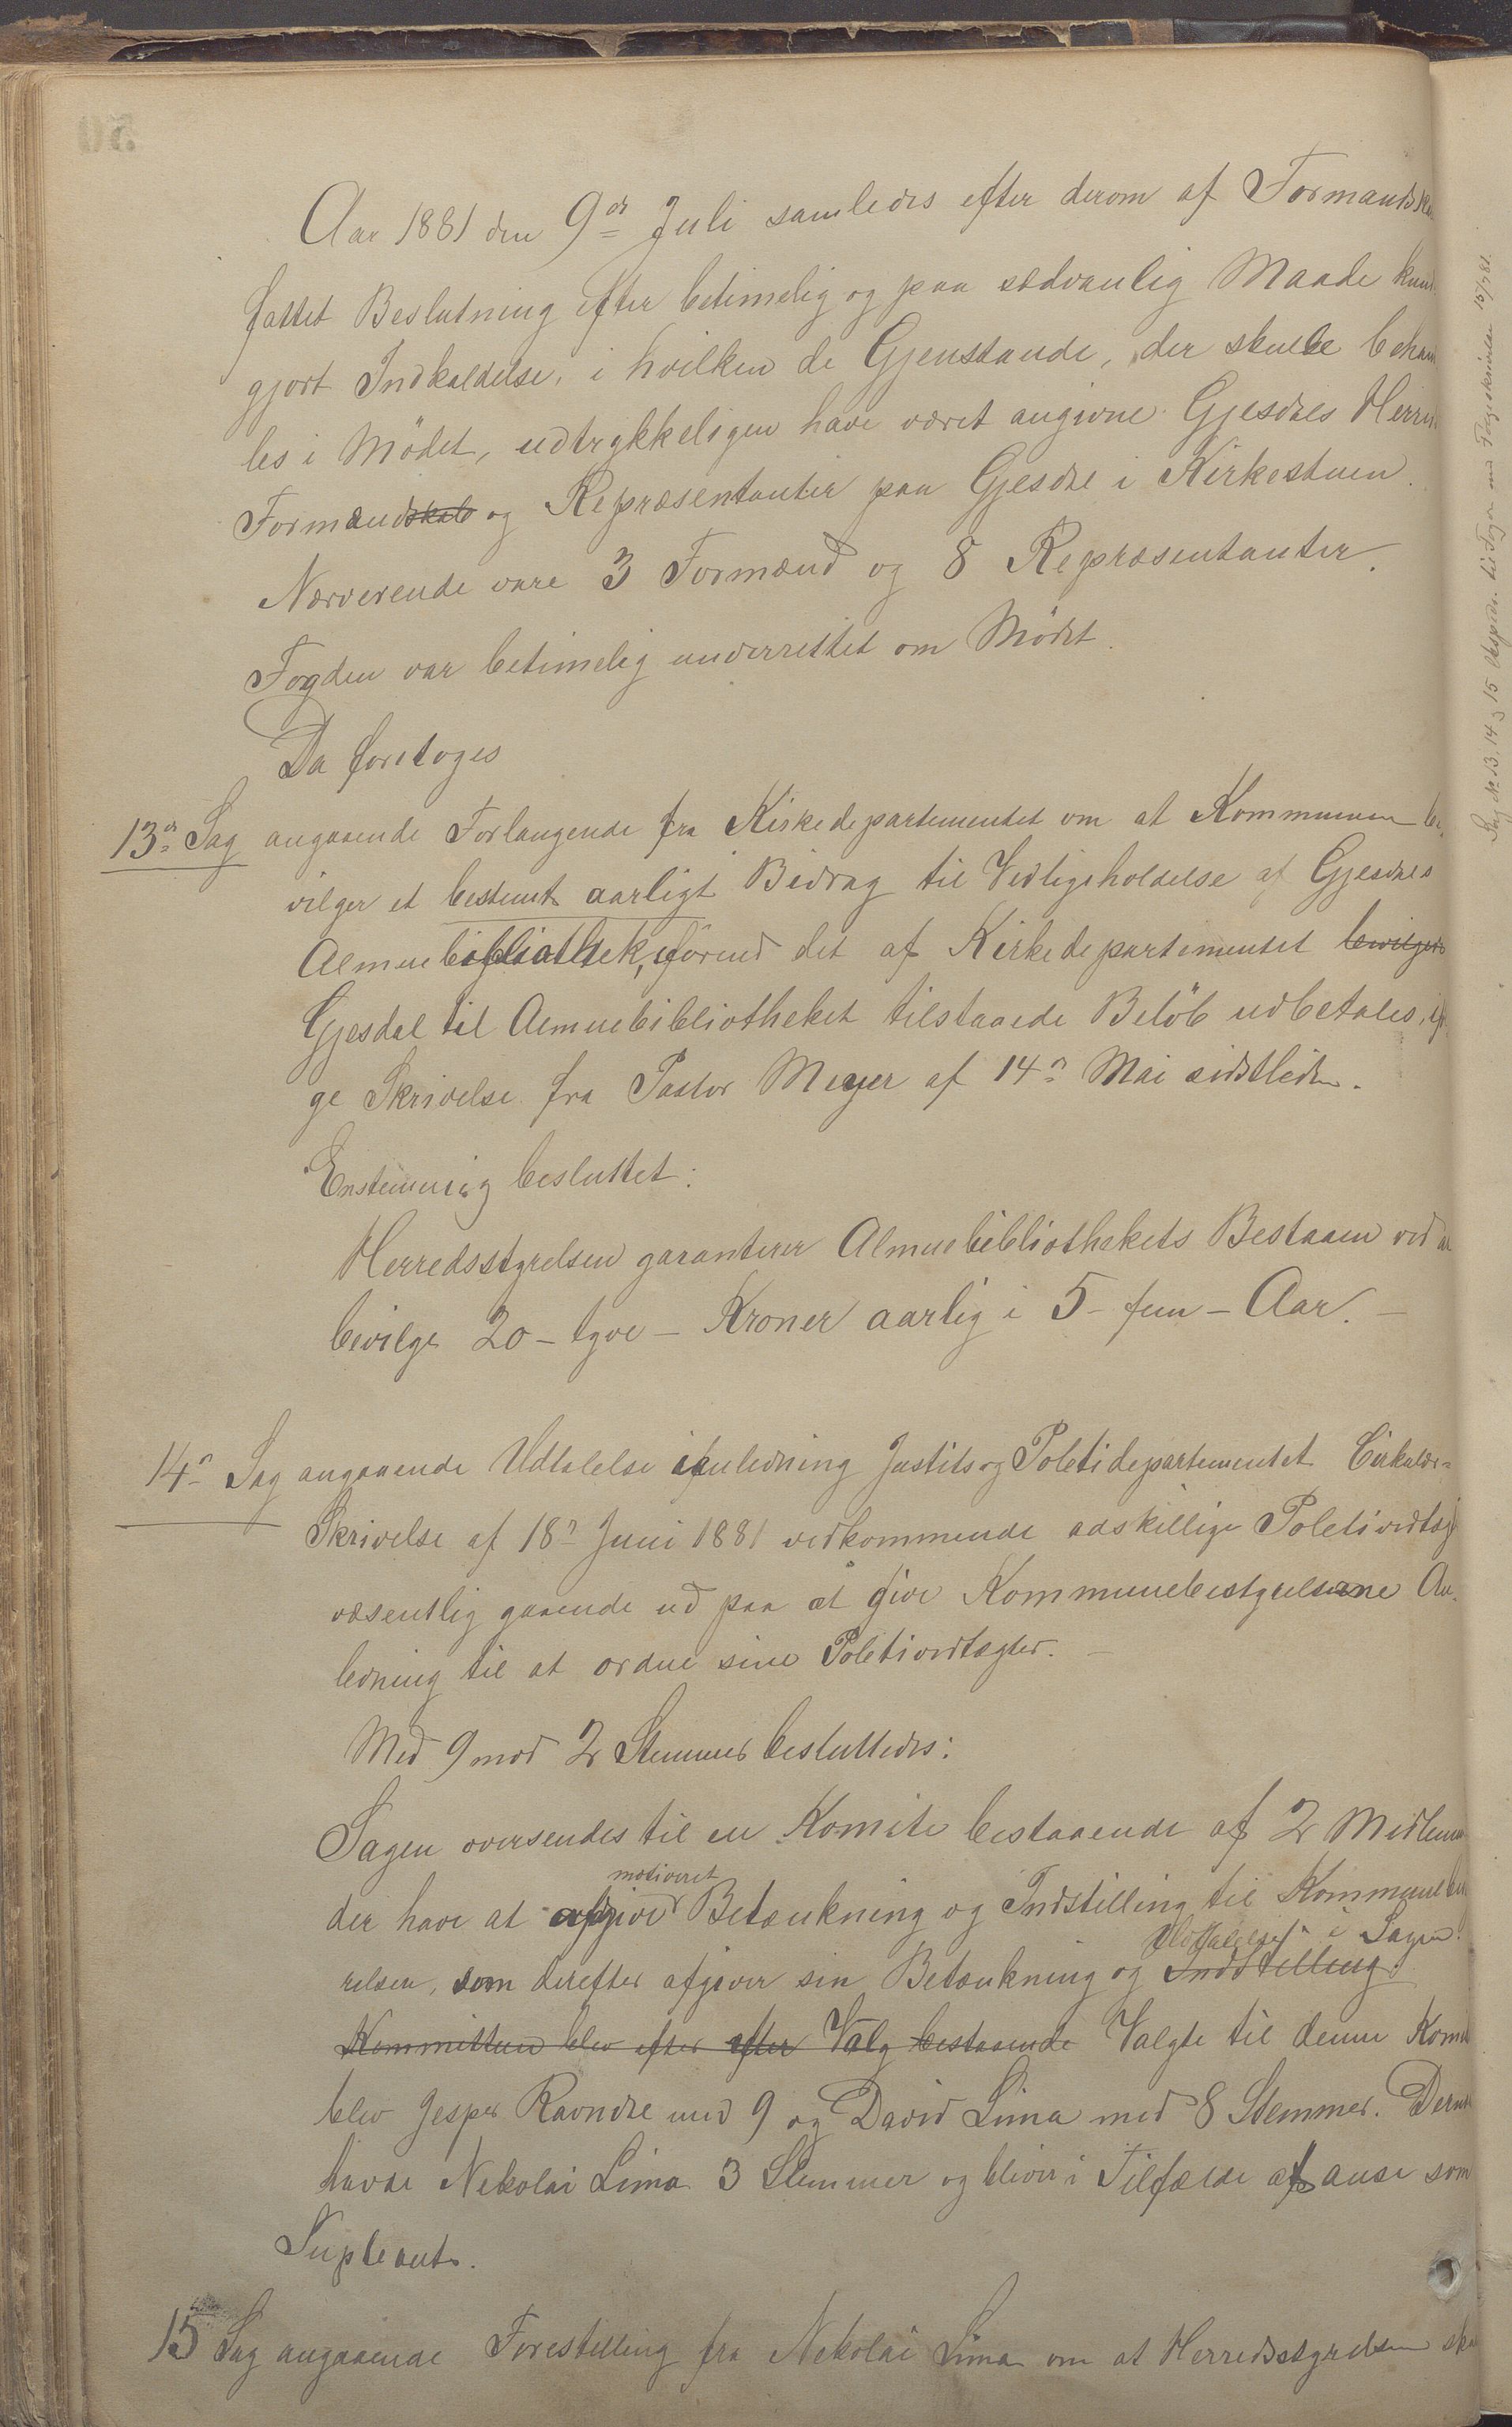 Aar 1881 den 9de Juli samledes efter derom af Formandska
fattet Beslutning efter betimelig og paa sædvanlig Maade kund
gjort Indkaldelse, i hvilken de Gjenstande, der skulle behan
les i Mødet, udtrykkeligen have været angivne Gjesdals Herre
Formændskab og Repræsentanter paa Gjesdal i Kirkestuen.
Nærverende vare 3 Formænd og 8 Repræsentanter.
Fogden var betimelig underrettet om Mødet.
Da foretoges
13de Sag angaaende Forlangende fra Kirkedepartementet om at Kommunen be
vilger et bestemt aarligt Bidrag til Vedligeholdelse af Gjesdals
Almuebibliothek, förend det af Kirkedepartementet bevilgede
Gjesdal til Almuebibliotheket tilstaaede Beløb udbetales, if
ge Skrivelse fra Pastor Meyer af 14de Mai sidstleden.
Enstemmig besluttet:
Herredsstyrelsen garanterer Almuebibliothekets Bestaaen ved a
bevilge 20 – tyve – Kroner aarlig i 5 – fem – Aar. –
14de Sag angaaende Udtalelse i anledning Justits og Politidepartementet Cirkulær=
Skrivelse af 18de Juni 1881 vedkommende adskillige Politivedtæg
væsentlig gaaende ud paa at give Kommunebestyrelserne An
ledning til at ordne sine Politivedtægter. –
Med 9 mod 2 Stemmer besluttedes:
Sagen oversendes til en Komite bestaaende af 2 Medlem
motiveret
der have at afgive Betænkning og Indstilling til Kommunebe
Udtalelse i Sagen.
relsen, som derefter afgiver sin Betænkning og Indstilling.
Kommitteen blev efter efter Valg bestaaende Valgte til denne Kom
blev Jesper Ravndal med 9 og David Lima med 8 Stemmer. Dern
havde Nekolai Lima 3 Stemmer og bliver i Tilfælde at anse som
Supleant.
15 Sag angaaende Forestilling fra Nekolai Lima om at Herredsstyrelsen ska
Sag No 13, 14 og 15 til Fogden med Følgeskrivelse 15/7 81.